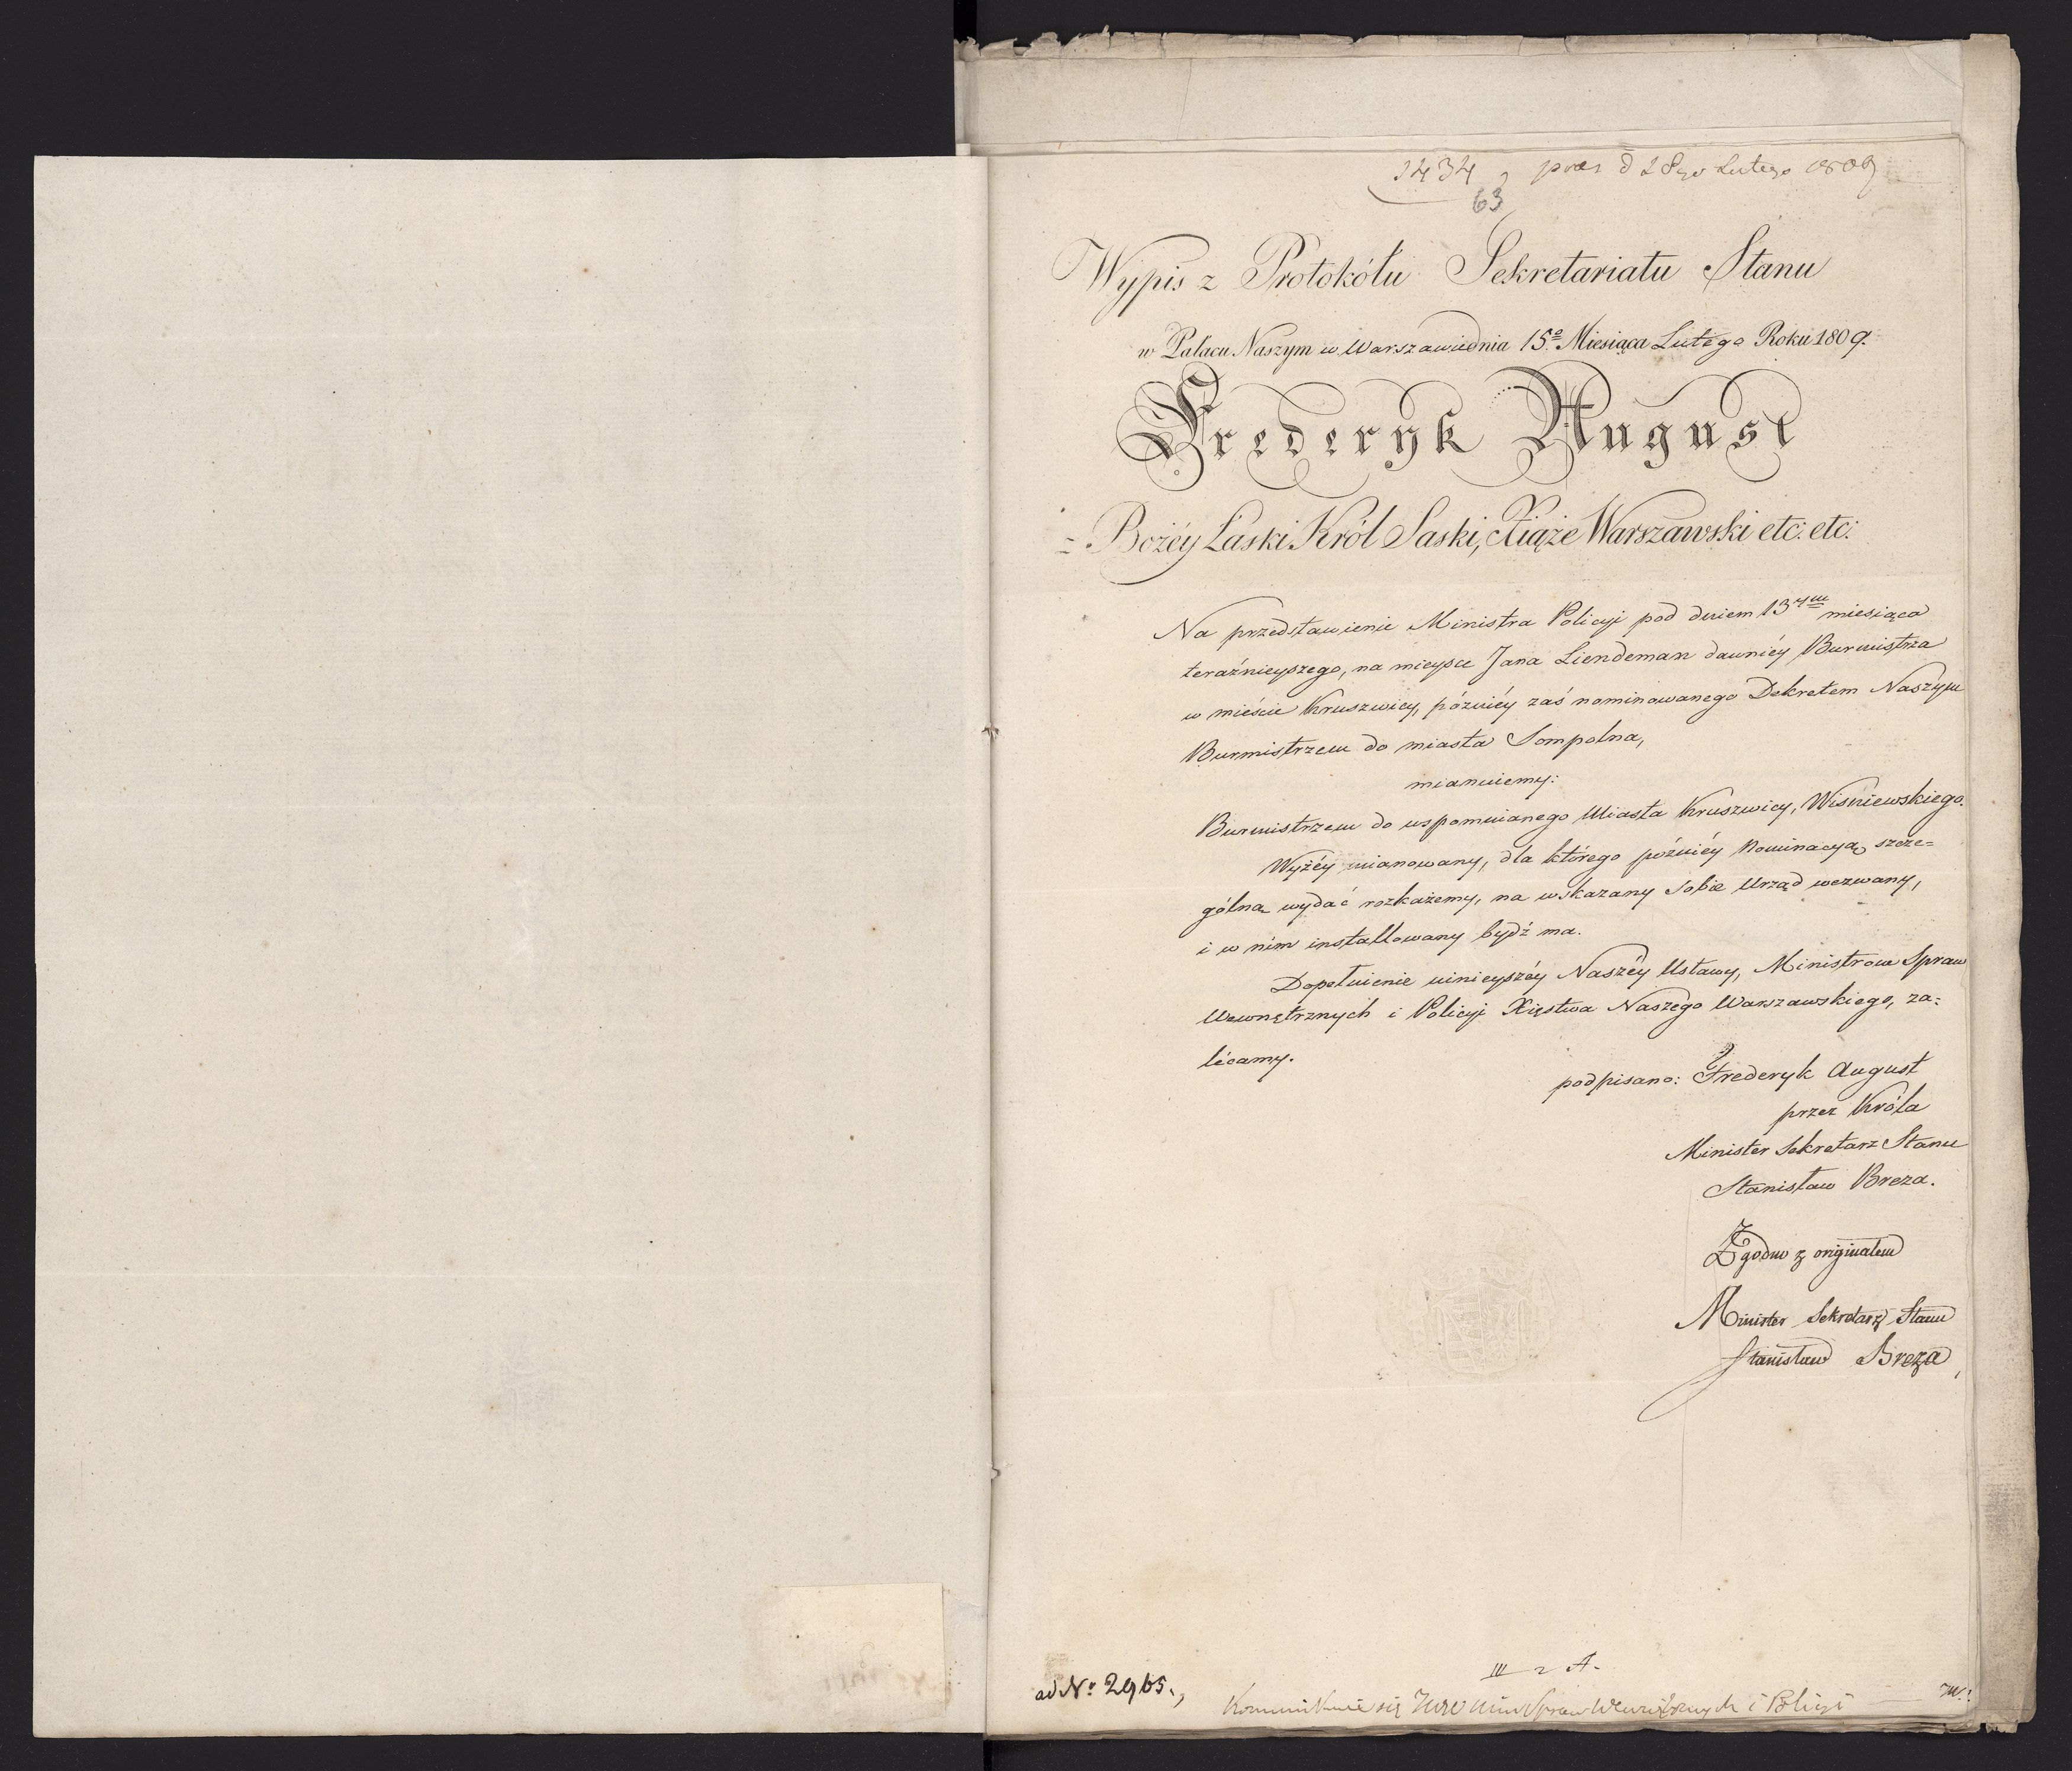 1434
63
pres d 28go Lutego 1809
Wypis z Protokółu Sekretariatu Stanu
w Pałacu Naszym w Warszawie dnia 15º Miesiąca Lutego Roku 1809.
Frederyk August
z Bożéy Łaski Król Saski, Xiąże Warszawski etc: etc:
Na przedstawienie Ministra Policyi pod dniem 13ym miesiąca
teraźnieyszego, na mieysce Jana Liendeman dawniéy Burmistrza
w mieście Kruszwicy, późniéy zaś nominowanego Dekretem Naszym
Burmistrzem do miasta Sompolna,
mianuiemy:
Burmistrzem do wspomnianego Miasta Kruszwicy, Wiśniewskiego.
Wyżéy mianowany, dla którego późniéy Nominacyą szcze=
gólną wydać rozkażemy, na wskazany sobie Urząd wezwany,
i w nim installowany bydź ma.
Dopełnienie ninieyszéy Naszéy Ustawy, Ministrom Spraw
Wewnętrznych i Policyi Xięstwa Naszego Warszawskiego, za=
lécamy.
podpisano: Frederyk August
przez Króla
Minister Sekretarz Stanu
Stanisław Breza.
Zgodno z originałem
Minister Sekretarz Stanu
Stanisław Breza
III 2 A.
ad Nº 2965.
Kommunikuie się JWW Min Spraw Wewnętrznych i Policyi